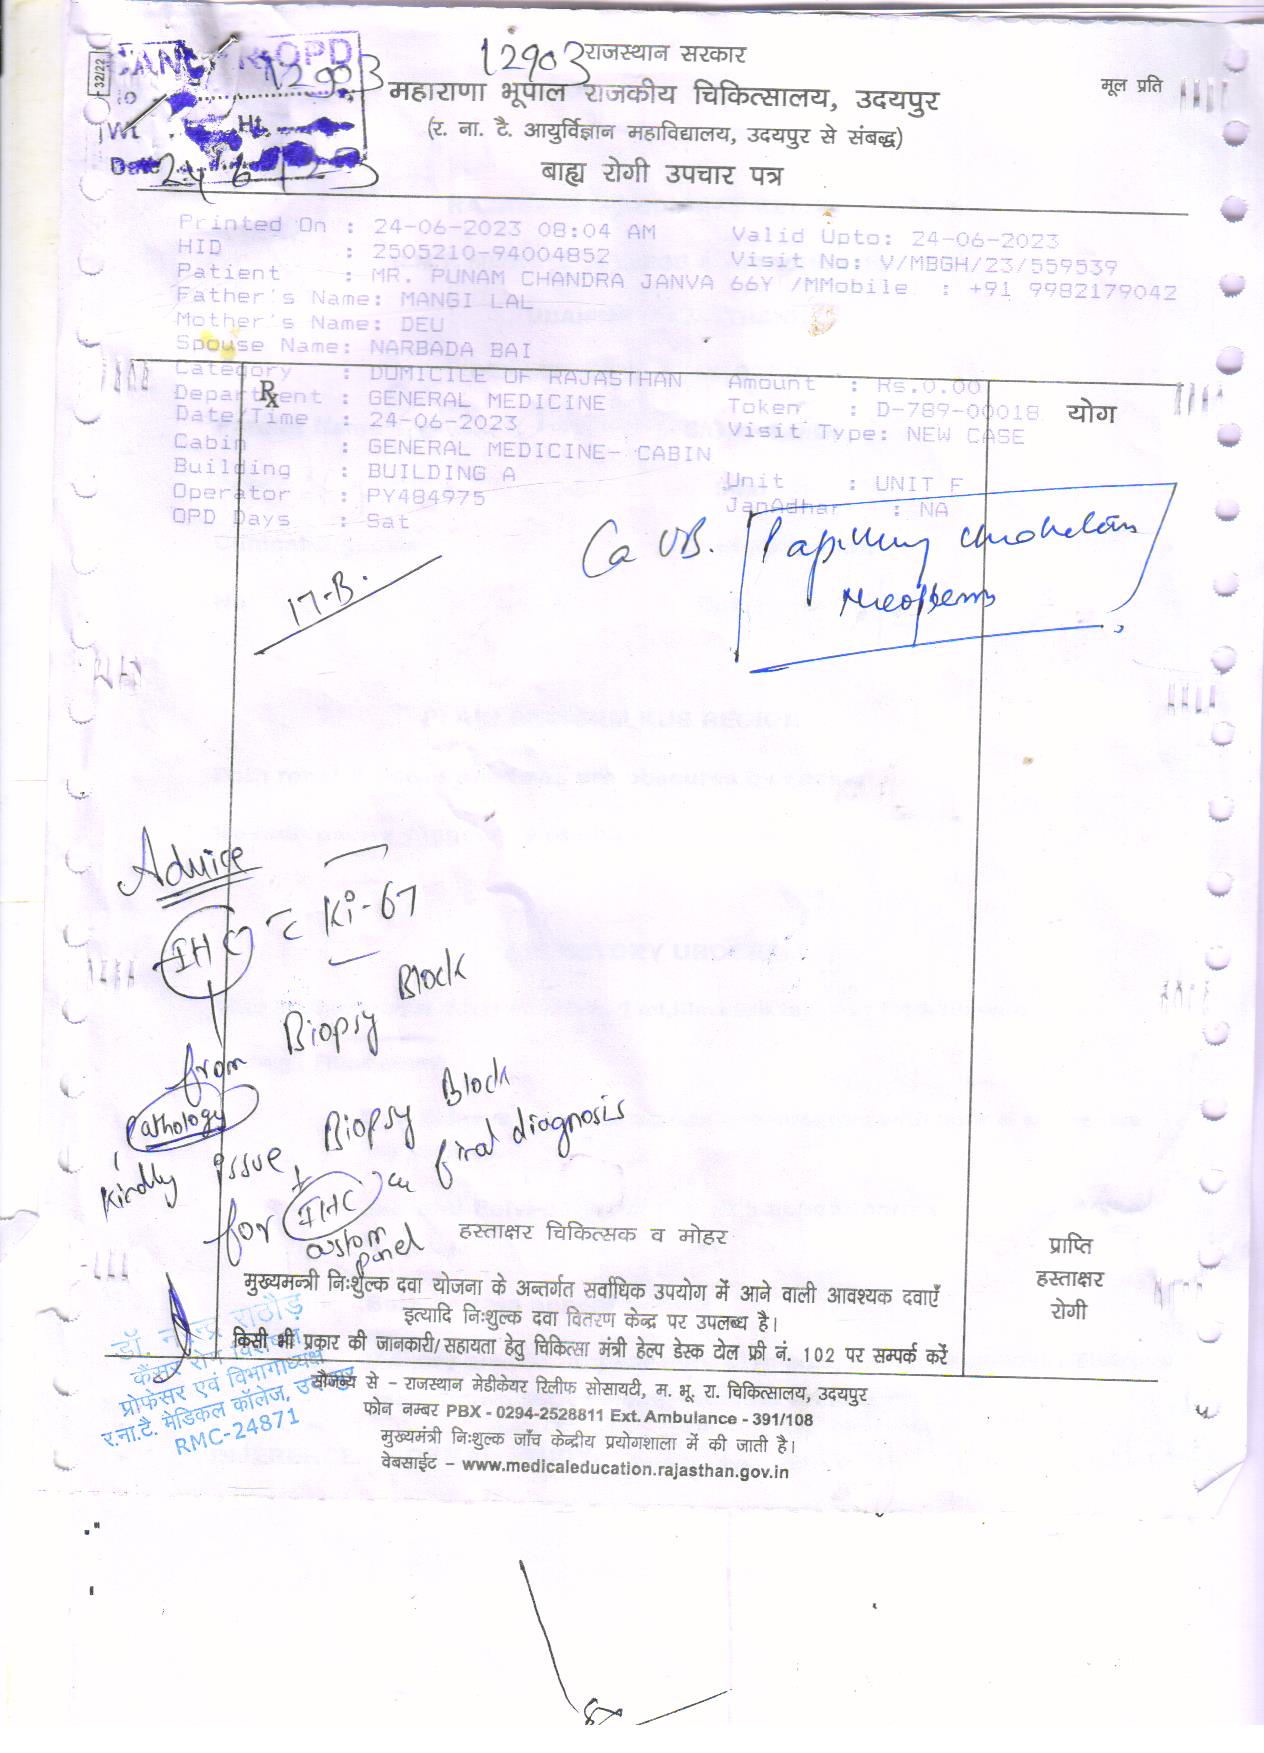 CANCER OPD
12903
32/22
Wt. Ht.
Date 24/6/23
12903
राजस्थान सरकार
मूल प्रति
महाराणा भूपाल राजकीय चिकित्सालय, उदयपुर
(र. ना. टै. आयुर्विज्ञान महाविद्यालय, उदयपुर से संबद्ध)
बाह्य रोगी उपचार पत्र
Printed On : 24-06-2023 08:04 AM Valid Upto: 24-06-2023
HID : 2505210-94004852 Visit No: V/MBGH/23/559539
Patient : MR. PUNAM CHANDRA JANVA 66Y /MMobile : +91 9982179042
Father's Name: MANGI LAL
Mother's Name: DEU
Spouse Name: NARBADA BAI
Category : DOMICILE OF RAJASTHAN Amount : Rs.0.00
Department : GENERAL MEDICINE Token : D-789-00018
Date/Time : 24-06-2023 Visit Type: NEW CASE
Cabin : GENERAL MEDICINE- CABIN
Building : BUILDING A Unit : UNIT F
Operator : PY484975 JanAdhar : NA
OPD Days : Sat
Rx
योग
17-B.
Ca UB. Papillary
Advice
IHC Ki-67
Biopsy Block
from
Pathology
Kindly issue Biopsy Block
for IHC final diagnosis
custom
panel
हस्ताक्षर चिकित्सक व मोहर
प्राप्ति
हस्ताक्षर
रोगी
मुख्यमन्त्री निःशुल्क दवा योजना के अन्तर्गत सर्वाधिक उपयोग में आने वाली आवश्यक दवाएँ
इत्यादि निःशुल्क दवा वितरण केन्द्र पर उपलब्ध है।
किसी भी प्रकार की जानकारी/सहायता हेतु चिकित्सा मंत्री हेल्प डेस्क टोल फ्री नं. 102 पर सम्पर्क करें
सौजन्य से – राजस्थान मेडीकेयर रिलीफ सोसायटी, म. भू. रा. चिकित्सालय, उदयपुर
फोन नम्बर PBX - 0294-2528811 Ext. Ambulance - 391/108
मुख्यमंत्री निःशुल्क जाँच केन्द्रीय प्रयोगशाला में की जाती है।
वेबसाईट – www.medicaleducation.rajasthan.gov.in
डॉ. नरेन्द्र राठौड़
कैंसर रोग विशेषज्ञ
प्रोफेसर एवं विभागाध्यक्ष
र.ना.टै. मेडिकल कॉलेज, उदयपुर
RMC-24871